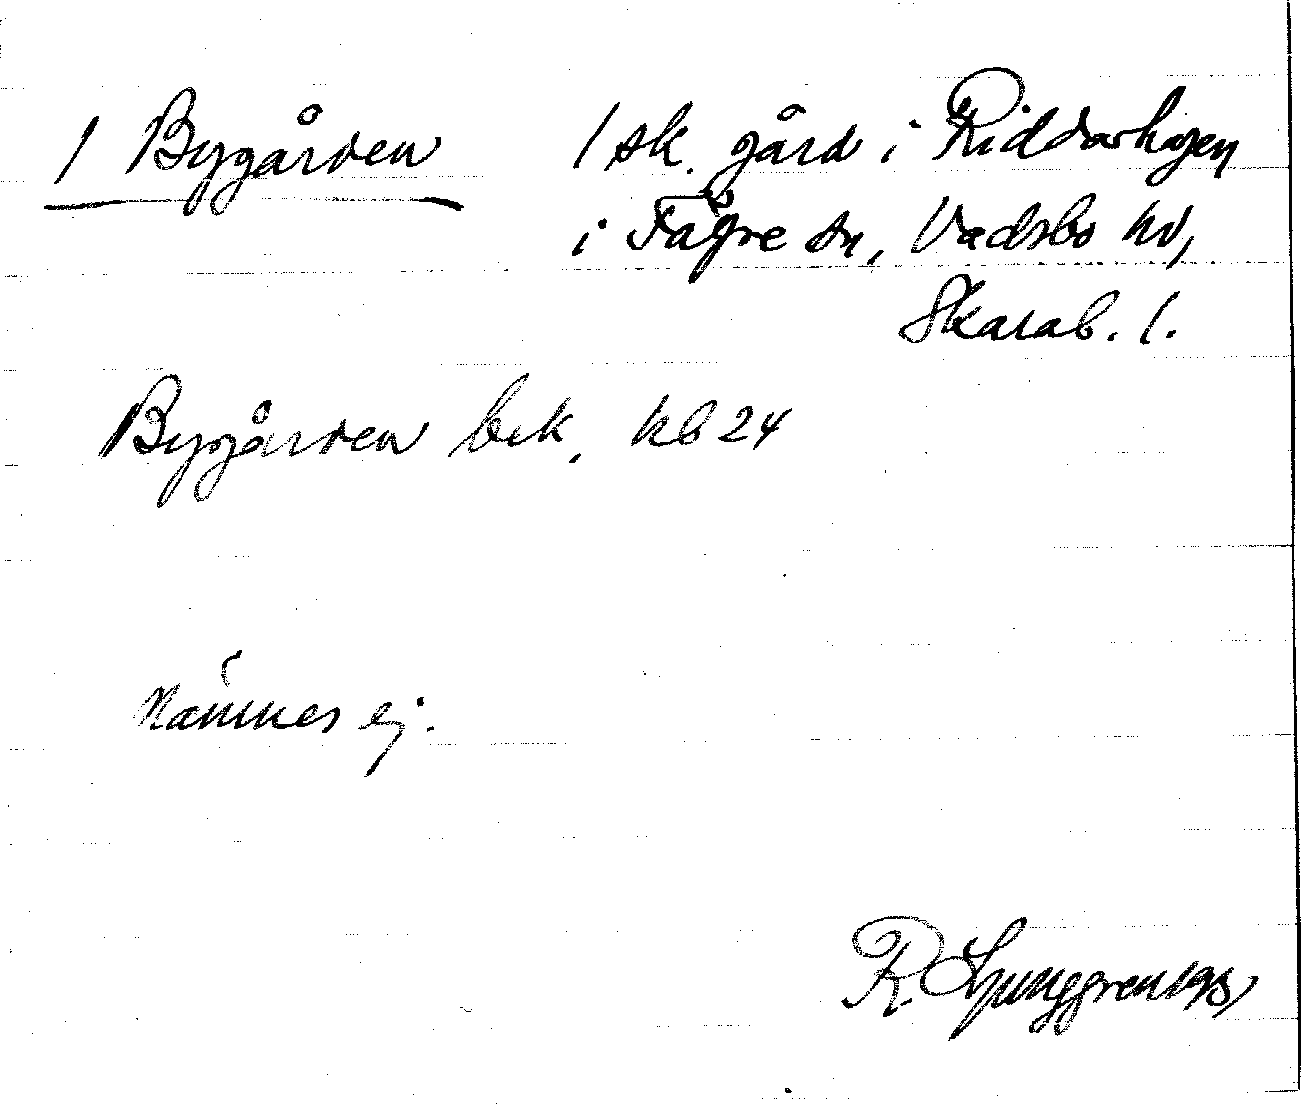 1 Bygården 1 sk. gård i Riddarhagen
i Fägre sn, Vadsbo hd,
Skarab. l.
Bygården bek. kb 24
Nämnes ej.
R. Ljunggren